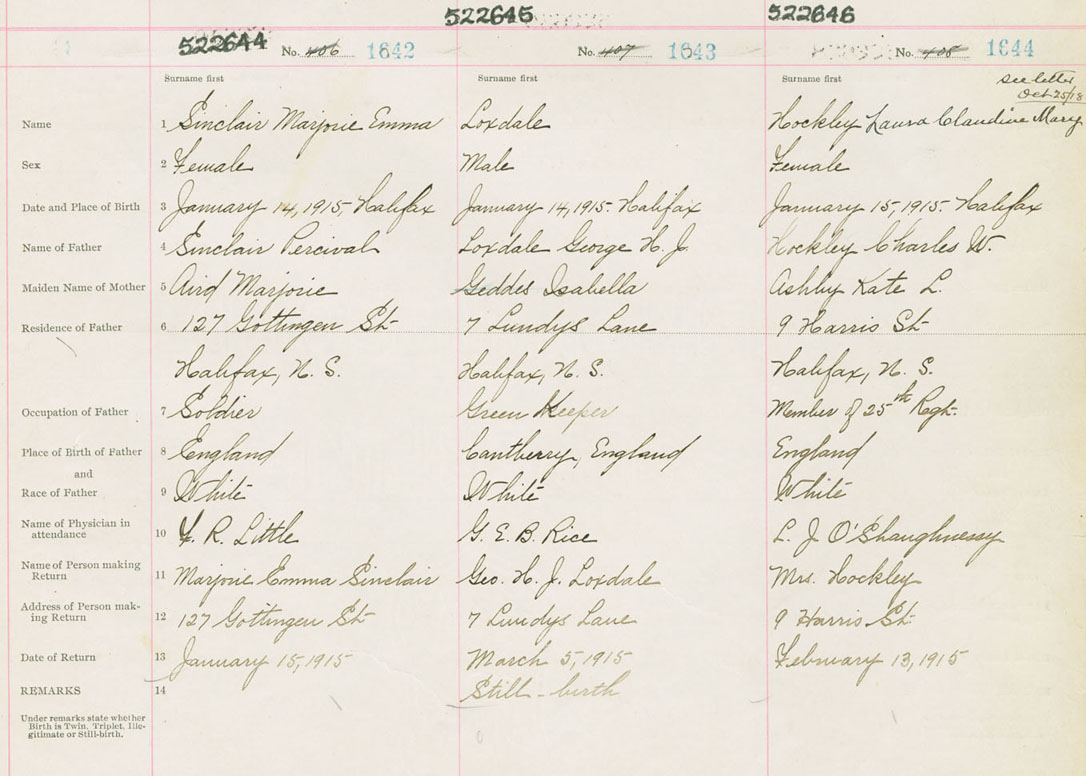 522644 522645 522646
No. 406 1642 No. 407 1643 No. 408 1644
Surname first Surname first Surname first see letter
Oct 25/18
Name 1 Sinclair Marjorie Emma Loxdale Hockley Laura Claudine Mary
Sex 2 Female Male Female
Date and Place of Birth 3 January 14, 1915, Halifax January 14, 1915. Halifax January 15, 1915. Halifax
Name of Father 4 Sinclair Percival Loxdale George H. J. Hockley Charles W.
Maiden Name of Mother 5 Aird Marjorie Geddes Isabella Ashby Kate L.
Residence of Father 6 127 Gottingen St 7 Lundys Lane 9 Harris St
Halifax, N. S. Halifax, N. S. Halifax, N. S.
Occupation of Father 7 Soldier Green Keeper Member of 25th Regt.
Place of Birth of Father 8 England Cantberry, England England
and
Race of Father 9 White White White
Name of Physician in
attendance 10 F. R. Little G. E. B. Rice L. J. O'Shaughnessy
Name of Person making
Return 11 Marjorie Emma Sinclair Geo. H. J. Loxdale Mrs. Hockley
Address of Person mak-
ing Return 12 127 Gottingen St 7 Lundys Lane 9 Harris St.
Date of Return 13 January 15, 1915 March 5, 1915 February 13, 1915
REMARKS 14 Still-birth
Under remarks state whether
Birth is Twin. Triplet. Ille-
gitimate or Still-birth.